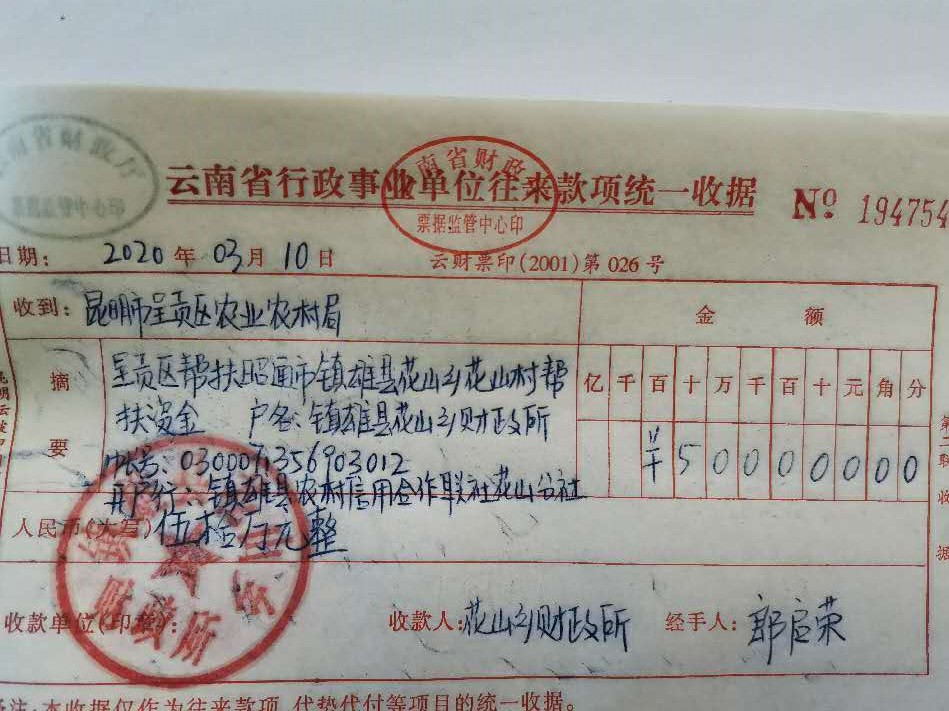 云南省行政事业单位往来款项统一收据 No. 194754
南省财政
票据监管中心印
日期: 2020 年 03 月 10 日 云财票印(2001)第 026 号
收到: 昆明市呈贡区农业农村局
金 额
摘要
呈贡区帮扶昭通市镇雄县花山乡花山村帮
扶资金 户名:镇雄县花山乡财政所
帐号:0300071356903012
开户行:镇雄县农村信用合作联社花山分社
亿 千 百 十 万 千 百 十 元 角 分
¥ 5 0 0 0 0 0 0 0
人民币(大写) 伍拾万元整
收款单位(印章):
财政所
收款人: 花山乡财政所 经手人: 郭启荣
备注:本收据仅作为往来款项、代垫代付等项目的统一收据。